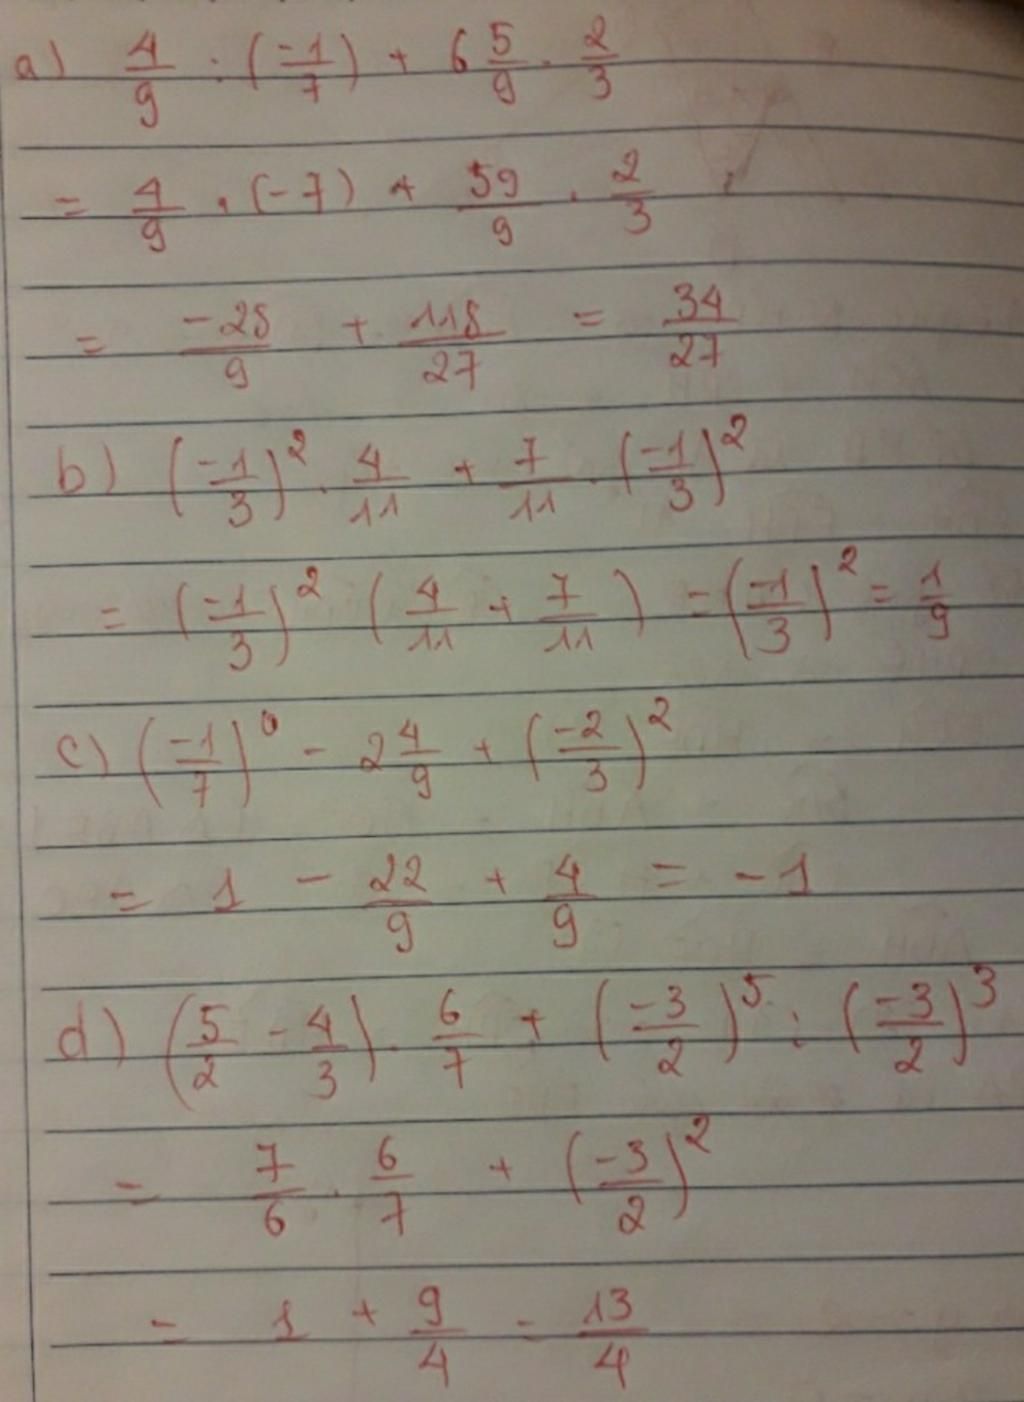 a) 4/9 : (-1/7) + 6 5/9 . 2/3
= 4/9 . (-7) + 59/9 . 2/3
= -28/9 + 118/27 = 34/27
b) (-1/3)² . 4/11 + 7/11 . (-1/3)²
= (-1/3)² (4/11 + 7/11) = (-1/3)² = 1/9
c) (-1/7)⁰ - 2 4/9 + (-2/3)²
= 1 - 22/9 + 4/9 = -1
d) (5/2 - 4/3) . 6/7 + (-3/2)⁵ : (-3/2)³
= 7/6 . 6/7 + (-3/2)²
= 1 + 9/4 = 13/4